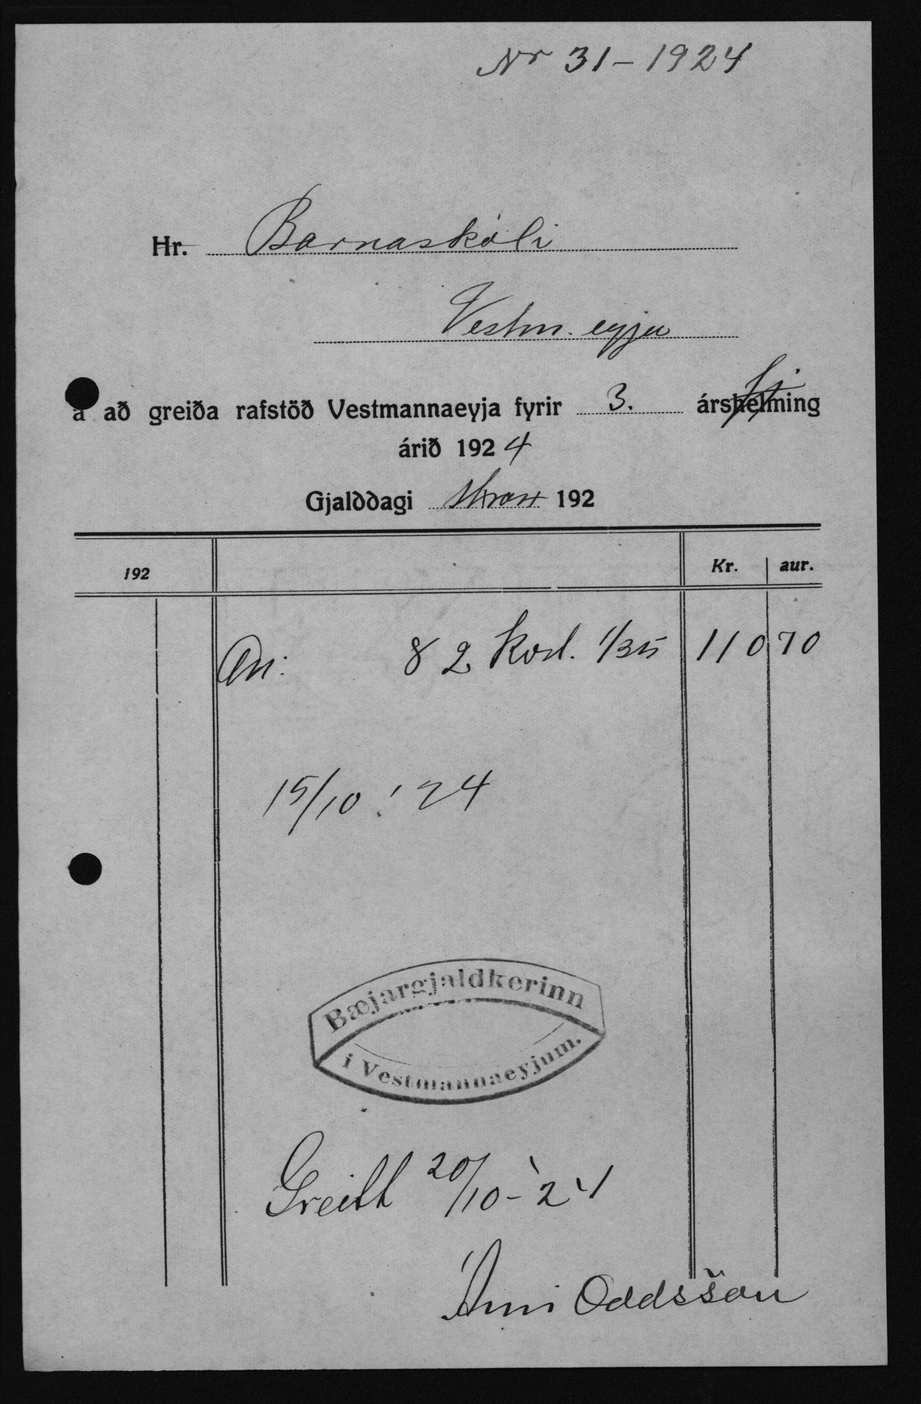 Nr 31 - 1924
Hr. Barnaskóli
Vestm. eyju
á að greiða rafstöð Vestmannaeyja fyrir 3. árshelming
árið 1924
Gjalddagi strax 192
192 Kr. aur.
82 kvst. 1/35 110 70
15/10 '24
Bæjargjaldkerinn
í Vestmannaeyjum.
Greitt 20/10 - '24
Árni Oddsson